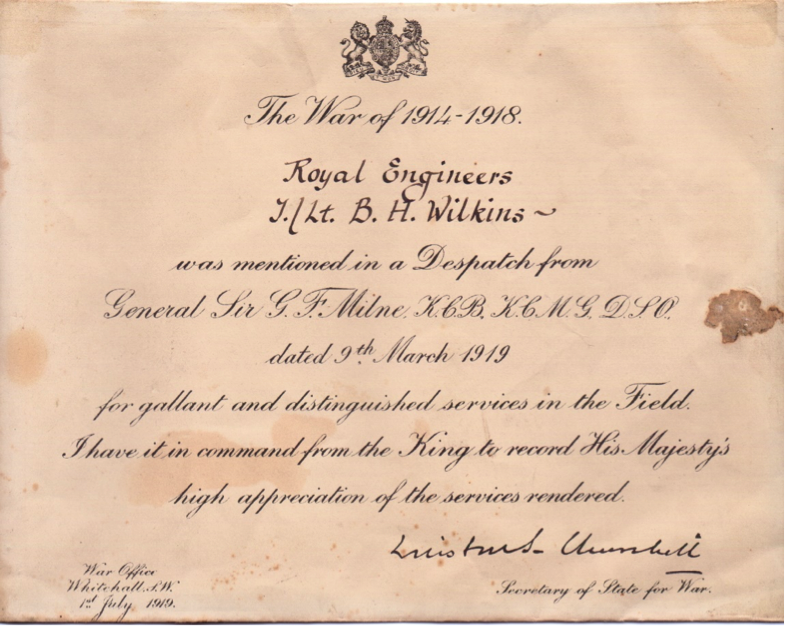 The War of 1914-1918.
Royal Engineers
T./Lt. B. H. Wilkins ~
was mentioned in a Despatch from
General Sir G. F. Milne, K.C.B., K.C.M.G., D.S.O.,
dated 9th March 1919
for gallant and distinguished services in the Field.
I have it in command from the King to record His Majesty's
high appreciation of the services rendered.
Winston S. Churchill
War Office
Whitehall, S.W.
1st July 1919.
Secretary of State for War.